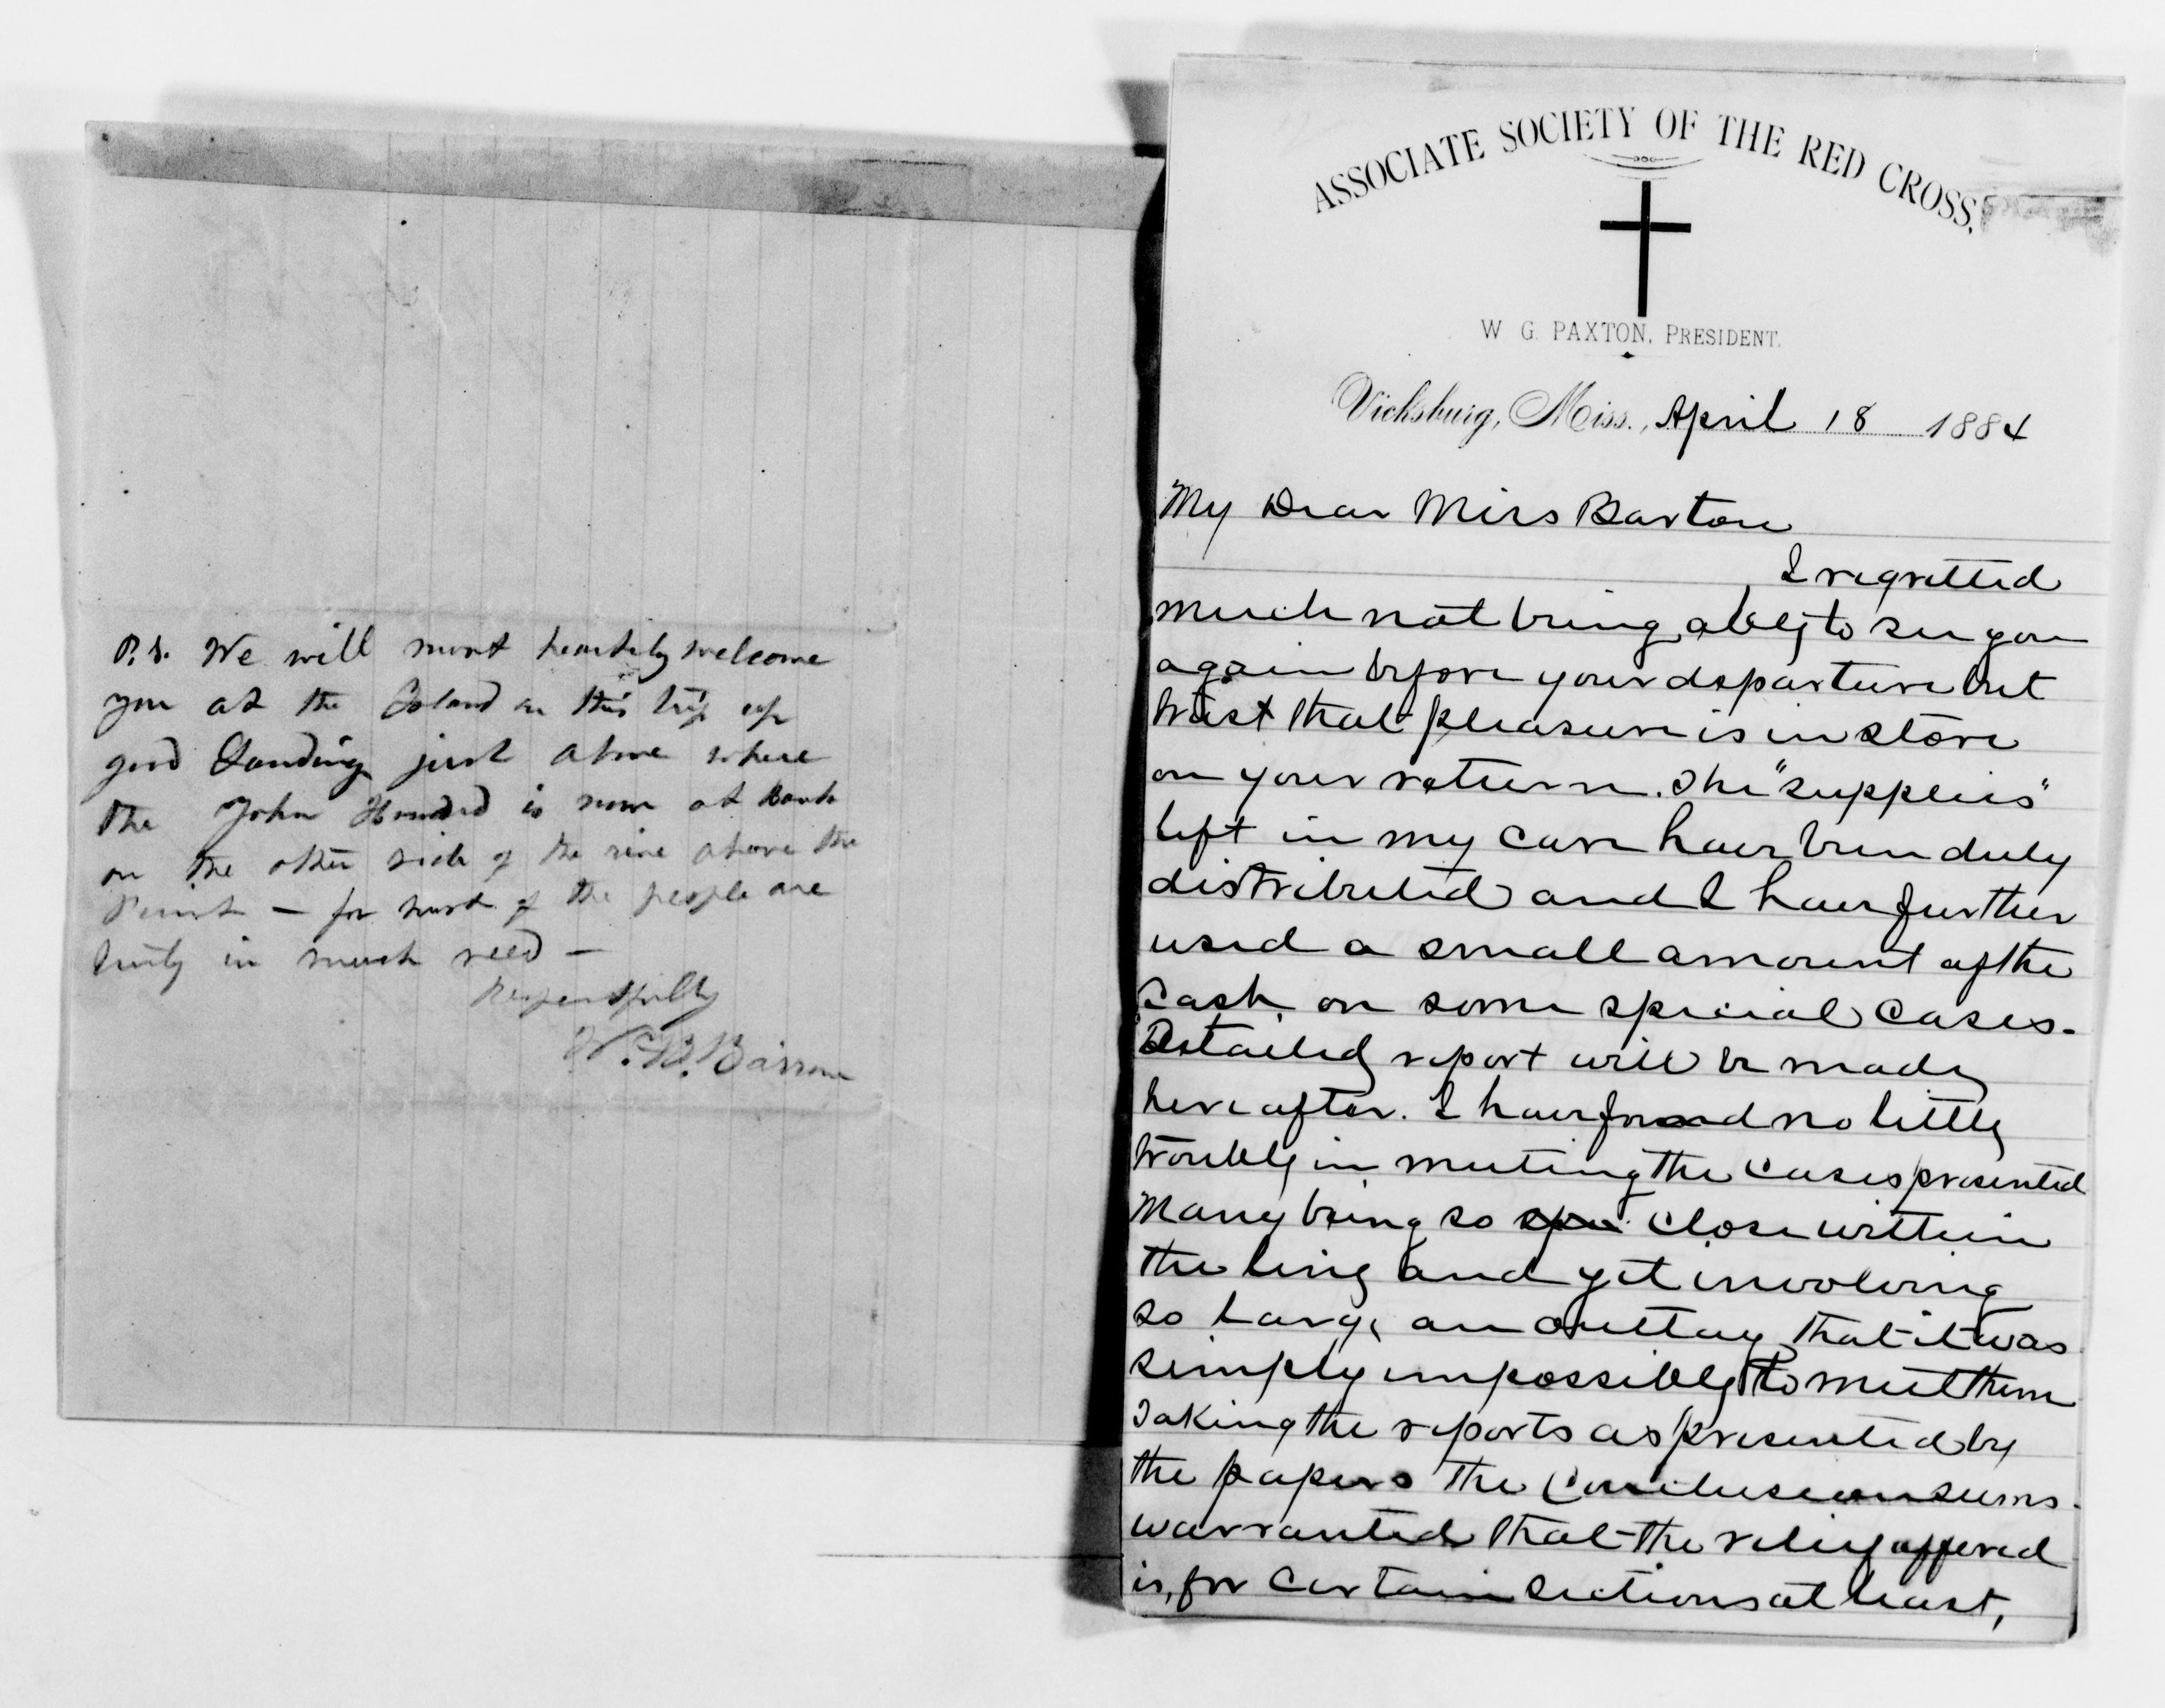 P.S. We will most heartily welcome
you at the Island on this trip up
good Landing just above where
the John Howard is now at Bank
on the other side of the river above the
Point — for most of the people are
truly in much need —
Respectfully
W. B. Barrow
ASSOCIATE SOCIETY OF THE RED CROSS.
W. G. PAXTON, PRESIDENT.
Vicksburg, Miss., April 18 1884
My Dear Miss Barton
I regretted
much not being able to see you
again before your departure but
trust that pleasure is in store
on your return. The "supplies"
left in my care have been duly
distributed and I have further
used a small amount of the
Cash on some special cases.
Detailed report will be made
hereafter. I have found no little
trouble in meeting the cases presented
Many being so close within
the line and yet involving
so large an outlay that it was
simply impossible to meet them
Taking the reports as presented by
the papers the Conclusion seems
warranted that the relief offered
is, for certain sections at least,